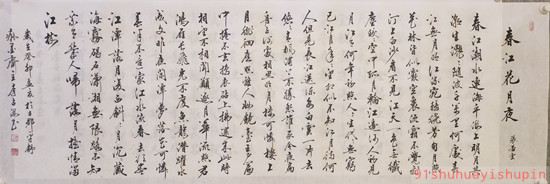 春江花月夜
張若虛
春江潮水連海平海上明月共潮
生灩灩隨波千萬里何處春
江無月明江流宛轉繞芳甸月照
花林皆似霰空裏流霜不覺飛
汀上白沙看不見江天一色無纖
塵皎皎空中孤月輪江邊何人初見
月江月何年初照人人生代代無窮
已江月年年望相似不知江月待何
人但見長江送流水白雲一片去
悠悠青楓浦上不勝愁誰家今夜扁
舟子何處相思明月樓可憐樓上
月徘徊應照離人妝鏡臺玉戶簾
中捲不去搗衣砧上拂還來此時
相望不相聞願逐月華流照君
鴻雁長飛光不度魚龍潛躍水
成文昨夜閑潭夢落花可憐
春半不還家江水流春去欲盡
江潭落月復西斜斜月沉沉藏
海霧碣石瀟湘無限路不知
乘月幾人歸落月搖情滿
江樹
歲在癸卯
91shuhuayishupin